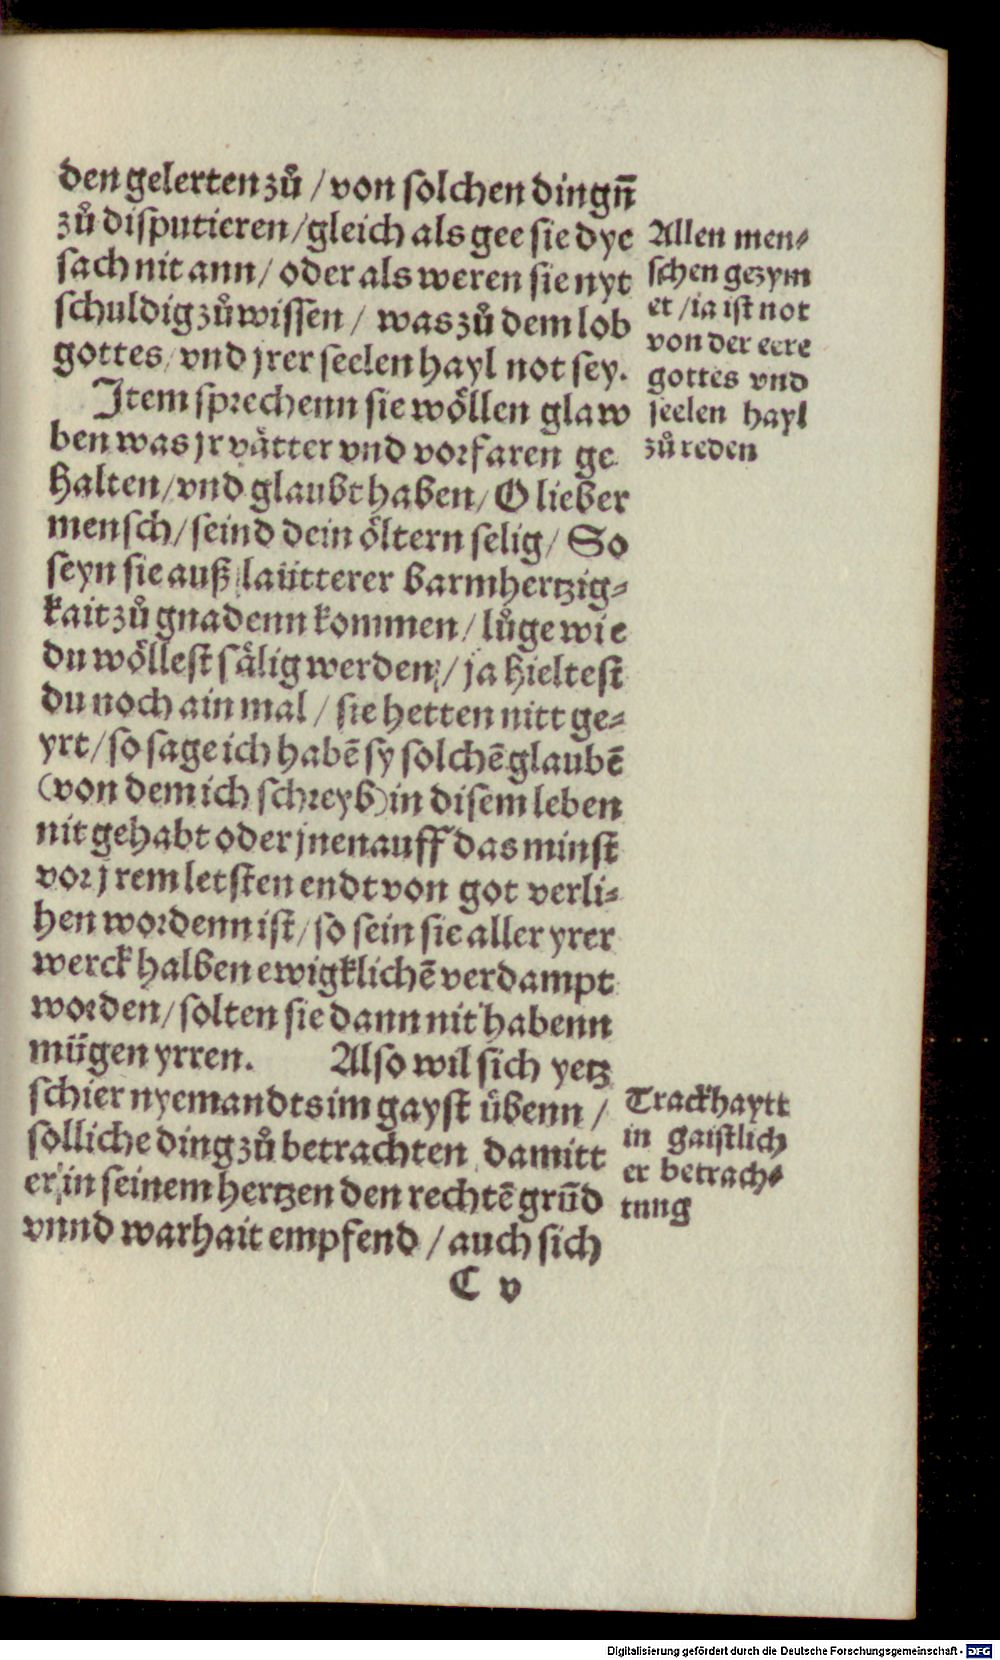 den gelerten zů / von solchen dingñ
zů disputieren / gleich als gee sie dye
sach nit ann / oder als weren sie nyt
schuldig zů wissen / was zů dem lob
gottes / vnd jrer seelen hayl not sey.
Item sprechenn sie wöllen glaw
ben was jr vätter vnd vorfaren ge
halten / vnd glaubt haben / O lieber
mensch / seind dein öltern selig / So
seyn sie auß laütterer barmhertzig-
kait zů gnadenn kommen / lůge wie
du wöllest sälig werden / ja hieltest
du noch ain mal / sie hetten nitt ge-
yrt / so sage ich habẽ sy solchẽ glaubẽ
(von dem ich schreyb) in disem leben
nit gehabt oder jnen auff das minst
vor jrem letsten endt von got verli-
hen wordenn ist / so sein sie aller yrer
werck halben ewigklichẽ verdampt
worden / solten sie dann nit habenn
mügen yrren. Also wil sich yetz
schier nyemandts im gayst übenn /
solliche ding zů betrachten damitt
er in seinem hertzen den rechtẽ grũd
vnnd warhait empfend / auch sich
C v
Allen men-
schen gezym
et / ia ist not
von der eere
gottes vnd
seelen hayl
zů reden
Trackhaytt
in gaistlich
er betrach-
tung
Digitalisierung gefördert durch die Deutsche Forschungsgemeinschaft - DFG